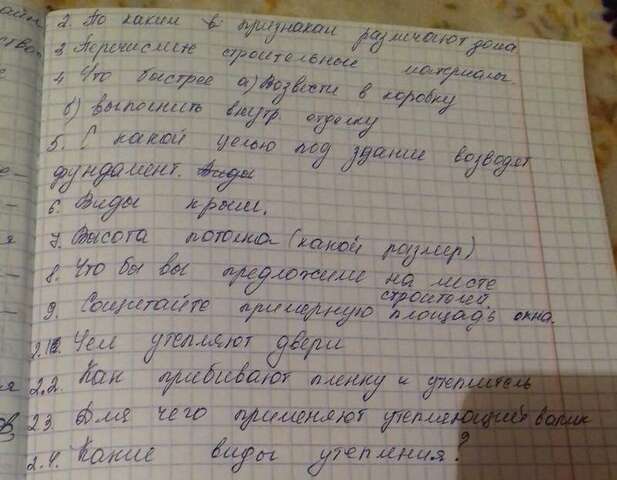 2. По каким в признакам различают дома
3 Перечислить строительные материалы
4 Что быстрее а) Возвести в коробку
б) выполнить внутр. отделку
5. С какой целью под здание возводят
фундамент. Виды
6. Виды крыш.
7. Высота потолка (какой размер)
8. Что бы вы предложили на месте
строителей.
9. Сощитайте примерную площадь окна.
2.1. Чем утепляют двери
2.2. Как прибивают пленку и утеплитель
23. Для чего применяют утепляющий валик
2.4. Какие виды утепления?